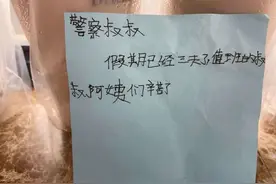 警察叔叔
假期已经三天了值班的叔
叔阿姨们辛苦了